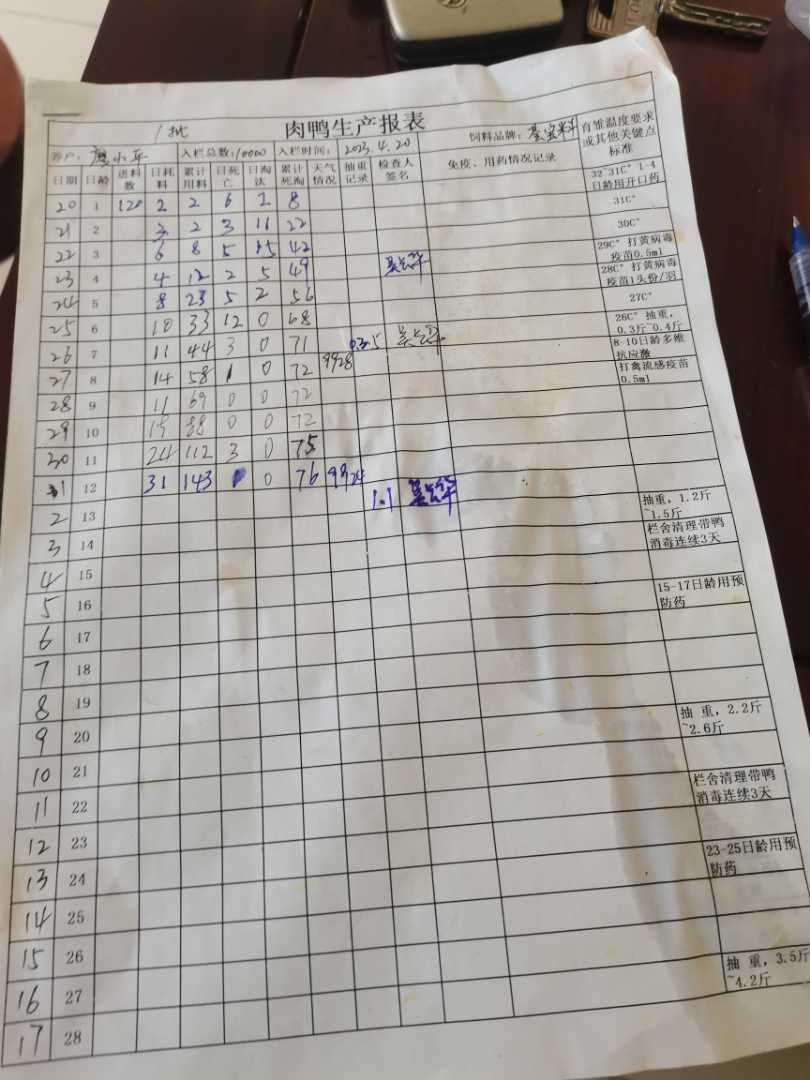 1批 肉鸭生产报表
养户: 入栏总数:10000 入栏时间: 2023.4.20 饲料品牌: 育雏温度要求或其他关键点标准
日期 日龄 进料数 日耗料 累计用料 日死亡 日淘汰 累计死淘 天气情况 抽重记录 检查人签名 免疫、用药情况记录
20 1 120 2 2 6 2 8 32~31C° 1-4日龄用开口药
21 2 2 3 11 22 31C°
22 3 6 8 5 15 42 30C°
23 4 4 12 2 5 49 29C° 打黄病毒疫苗0.5ml
24 5 8 23 5 2 56 28C° 打黄病毒疫苗1头份/羽
25 6 10 33 12 0 68 27C°
26 7 11 44 3 0 71 26C° 抽重,0.3斤~0.4斤
27 8 14 58 1 0 72 9928 8-10日龄多维抗应激
28 9 11 69 0 0 72 打禽流感疫苗0.5ml
29 10 19 88 0 0 72
30 11 24 112 3 0 75
1 12 31 143 1 0 76 1.1
2 13 抽重,1.2斤~1.5斤
3 14 栏舍清理带鸭消毒连续3天
4 15
5 16 15-17日龄用预防药
6 17
7 18
8 19
9 20 抽 重,2.2斤~2.6斤
10 21
11 22 栏舍清理带鸭消毒连续3天
12 23
13 24 23-25日龄用预防药
14 25
15 26
16 27 抽 重,3.5斤~4.2斤
17 28